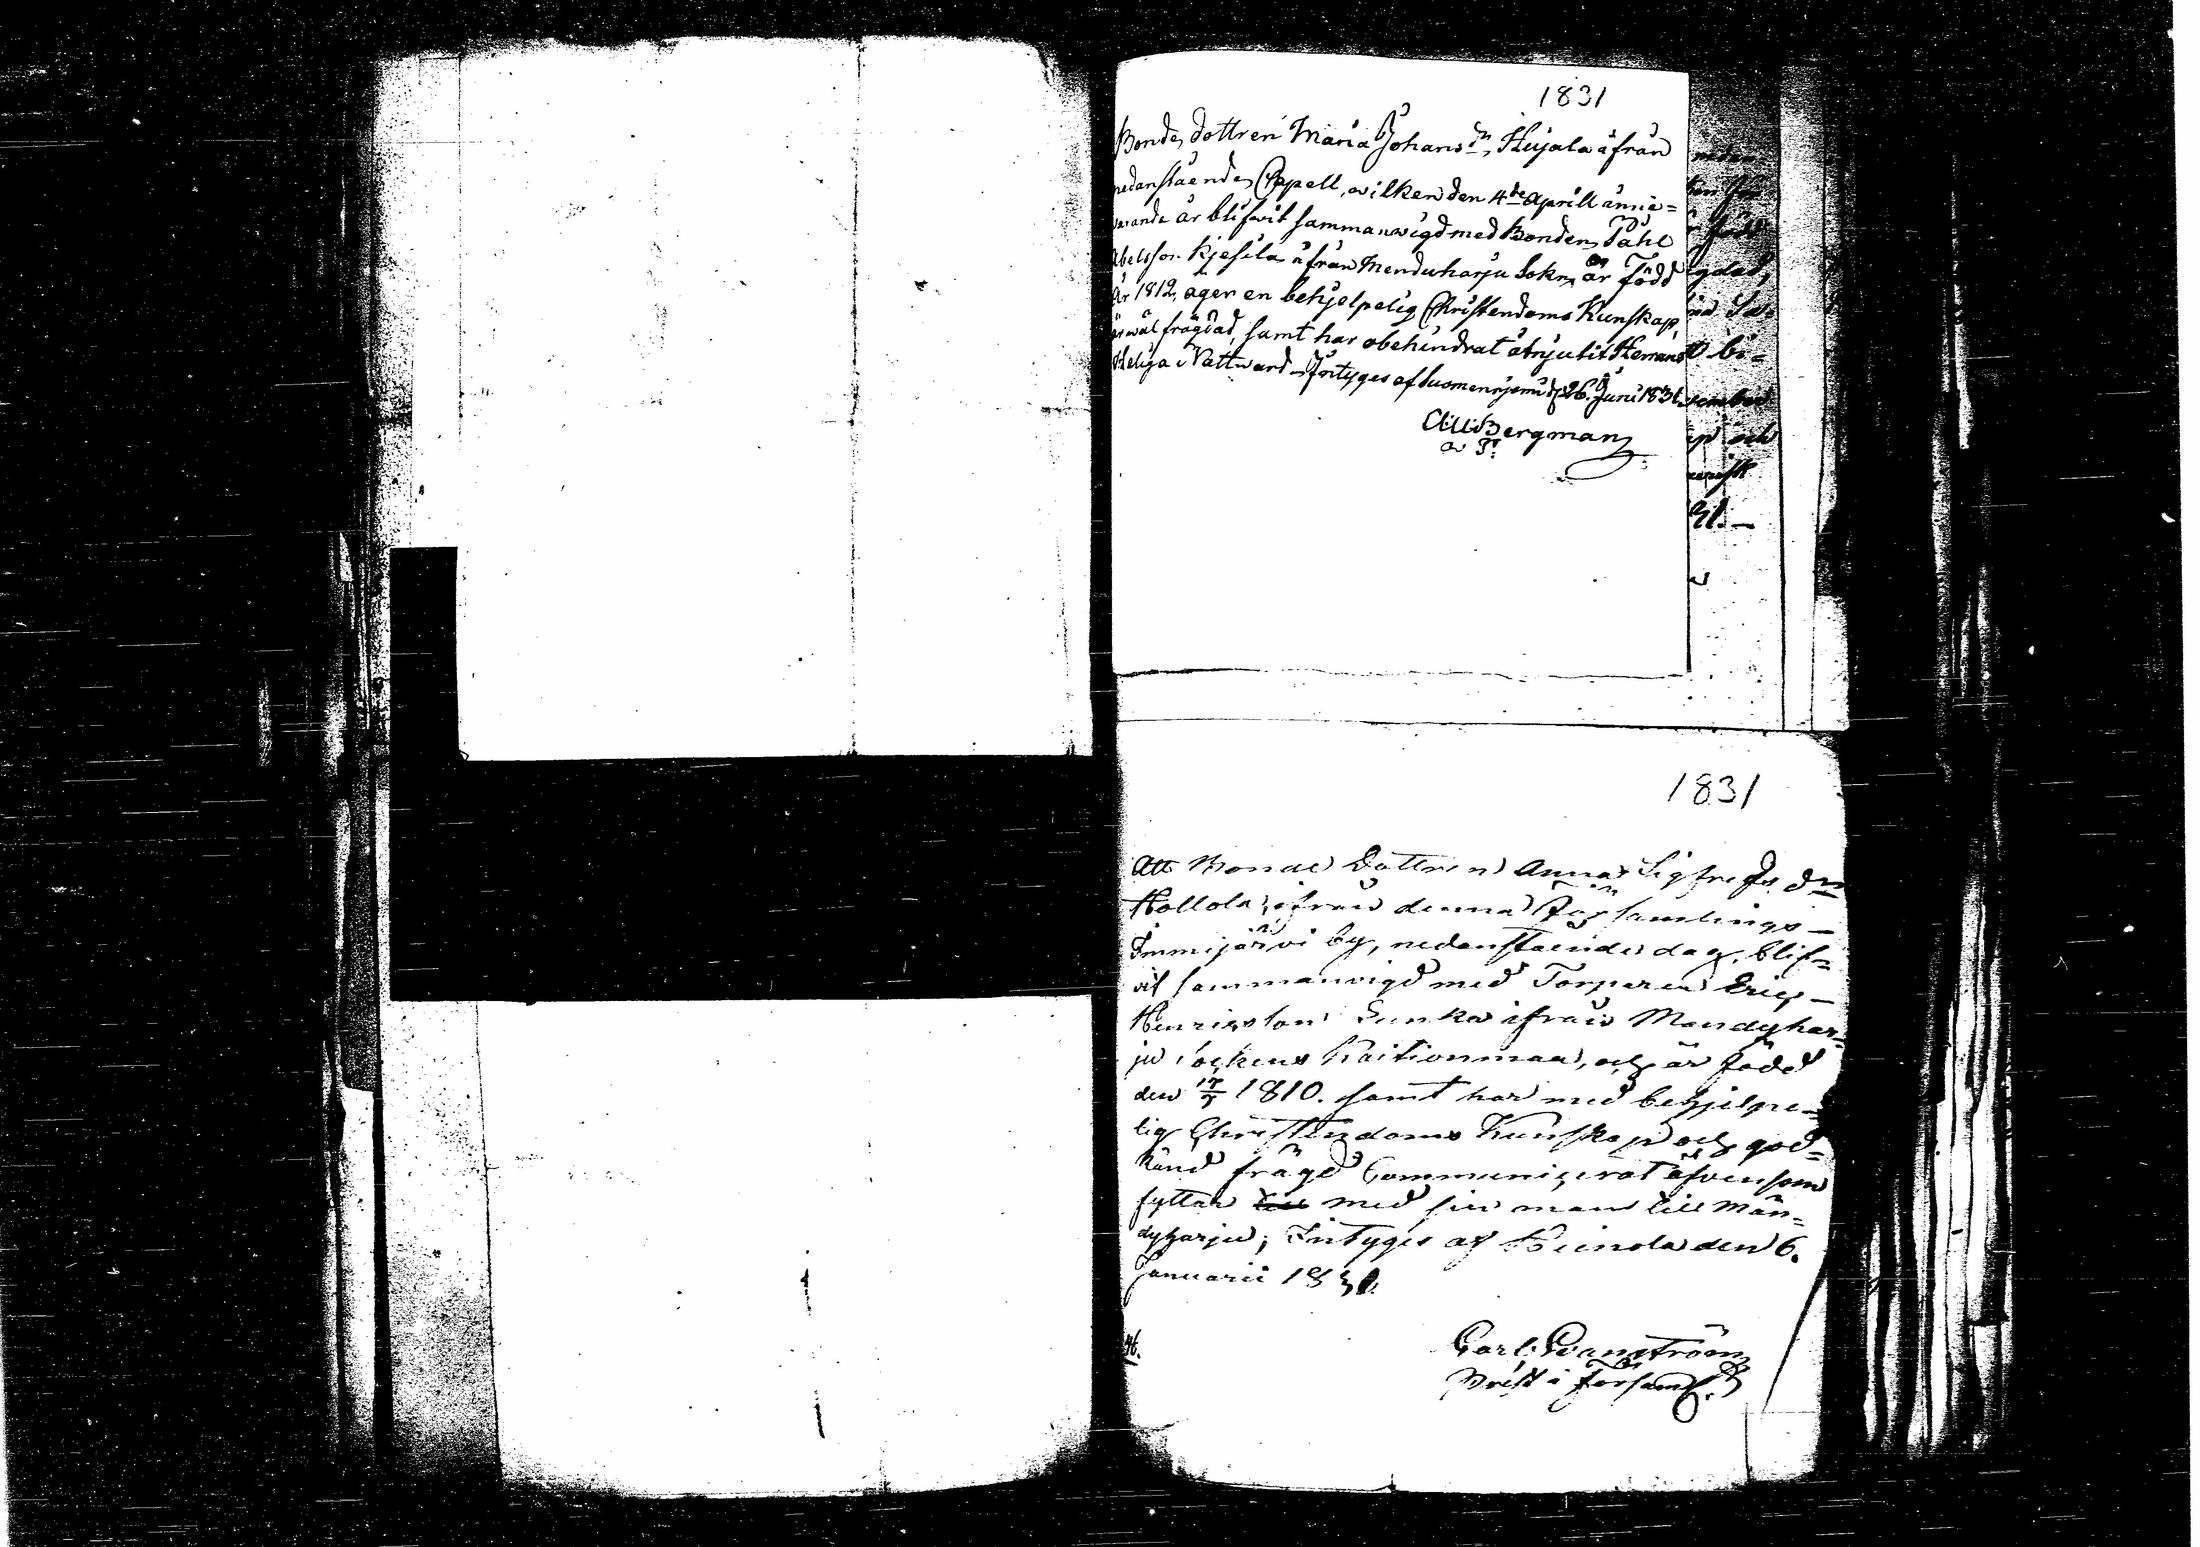 1831
Bonde dottren Maria Johans dr, Hujala ifrån
nedanstående Cappell, wilken den 4de Aprill inne=
warande år blifwit sammanwigd med Bonden Påhl
Abelsson Kjesilä ifrån Menduharju Sokn, är Född
År 1812, äger en behjelpelig Christendoms Kunskap,
är wäl frägdad, samt har obehindrat åtnjutit Herrans
Heliga Nattward – Intyges af Suomenniemi d. 26 Juni 1831
Bergman
1831
Att Bonde Dottren Anna Sigfreds dr
Hollola, ifrån denna Församlings
Immijärvi by, nedanstående dag, blif=
vit sammanvigd med Torparen Eric
Henricsson Sunka ifrån Mändyhar=
ju Sockens Koitionmaa, och är född
den 17/5 1810. samt har med behjelpe=
lig Christendoms Kunskap och god=
känd frägd Communicerat äfvensom
fyttar med sin man till Män=
dyharju; Intyges af Heinola den 6.
Januarii 1831.
Carl Granström
Prest i Församl.